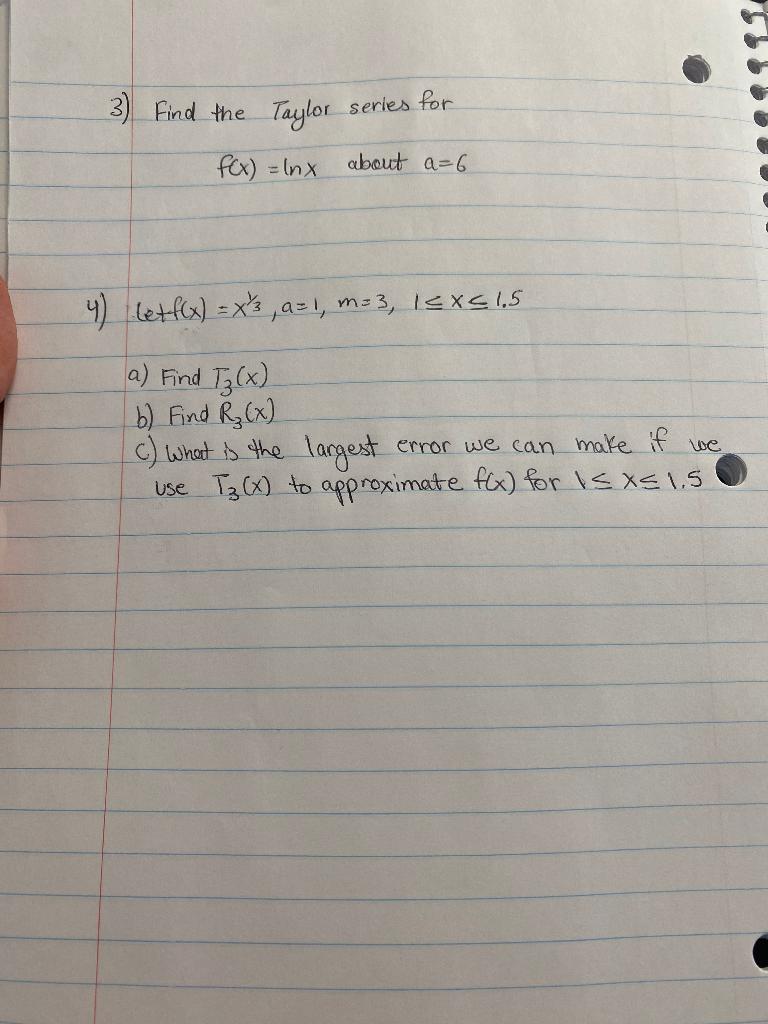 3) Find the Taylor series for
f(x) = ln x about a=6
4) let f(x) = x^1/3, a=1, m=3, 1≤x≤1.5
a) Find T₃(x)
b) Find R₃(x)
c) What is the largest error we can make if we
use T₃(x) to approximate f(x) for 1≤x≤1.5